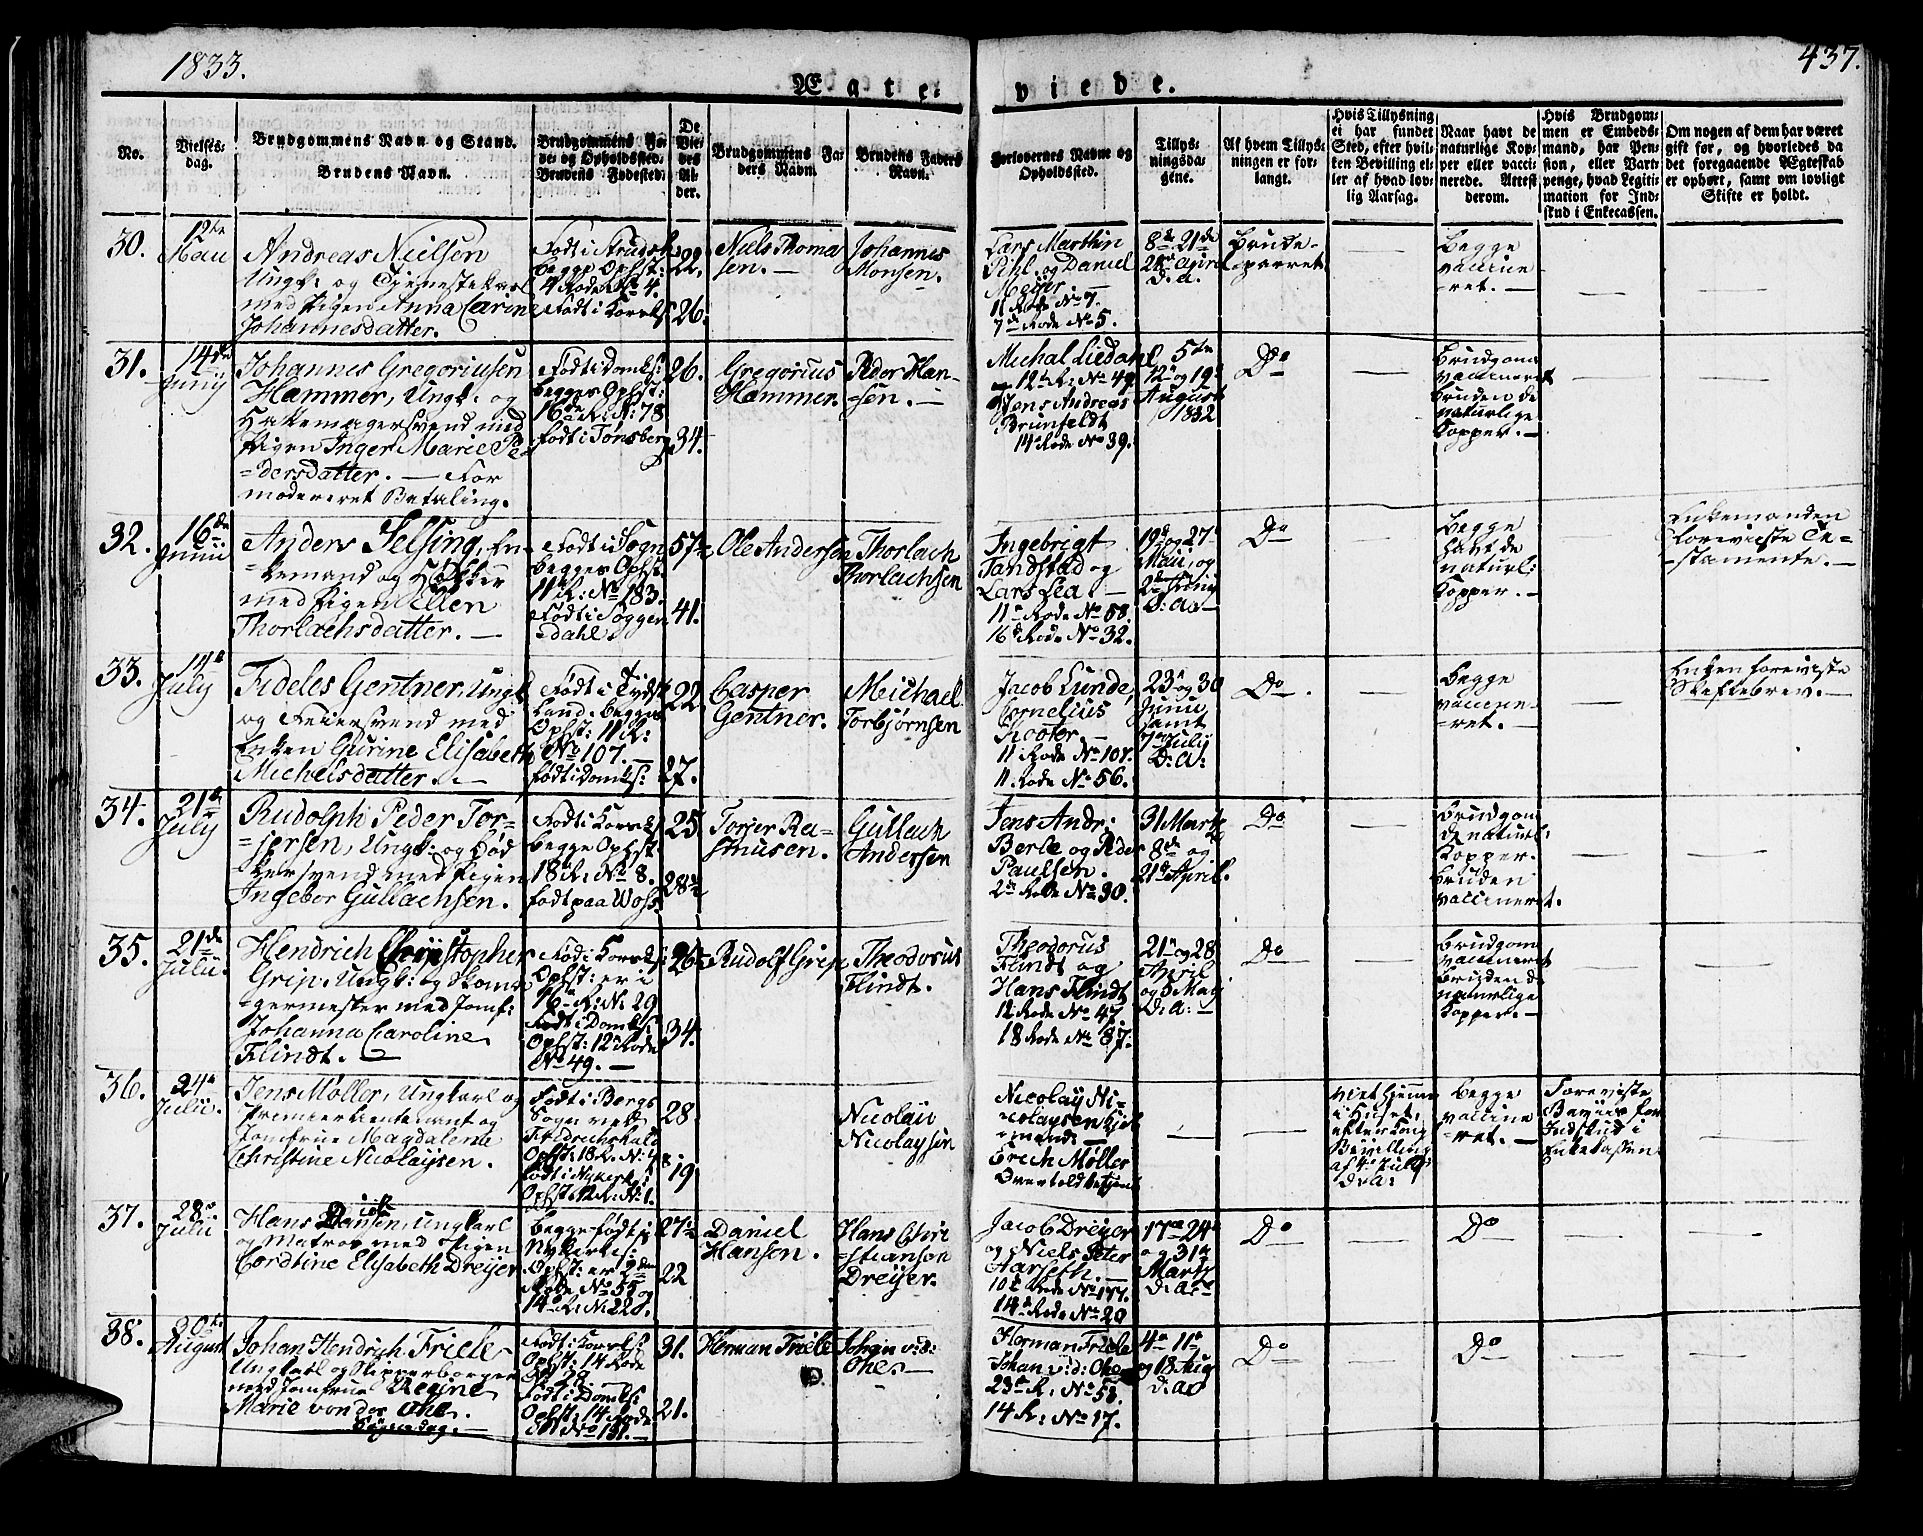 1833.
437.
Ægte-
viede.
No.
Vielses-
dag.
Brudgommens Navn og Stand.
Brudens Navn.
Brudgommens Fø-
de- og Opholdssted.
Brudens Fødested.
De
Vie-
des
Al-
der.
Brudgommens Fa-
ders Navn.
Brudens Faders
Navn.
Forlovernes Navne og
Opholdssted.
Tillys-
ningsda-
gene.
Af hvem Tillys-
ningen er for-
langt.
Hvis Tillysning
ei har fundet
Sted, efter hvil-
ken Bevilling el-
ler af hvad lov-
lig Aarsag.
Naar havt de
naturlige Kop-
per eller vacci-
nerede. Attest
derom.
Hvis Brudgom-
men er Embeds-
mand, har Pen-
sion, eller Vart-
penge, hvad Legiti-
mation for Ind-
skud i Enkecassen.
Om nogen af dem har været
gift før, og hvorledes da
det foregaaende Ægteskab
er ophørt, samt om lovligt
Skifte er holdt.
30.
12te
Maii
Andreas Nielsen
Ungk: og Tjenestekarl
med Pigen Anna Carine
Johannesdatter.
begges Ophst:
4 Rode No 4.
Født i Korsk:
22.
26.
Niels Thoma
sen. —
Johannes
Monsen.
Lars Marthin
Pihl og Daniel
Meÿer. —
11 Rode No 7.
7de Rode No 5.
8de 21de
28de April
D: a.
Brude-
parret
—
Begge
vaccine
-ret. —
—
—
31.
14de
Junij
Johannes Gregoriusen
Hammer, Ungk: og
Hattemagersvend med
Pigen Inger Marie Pe
=dersdatter. — For
modereret Betaling.
Født i Domks:
begges Ophst:
16de R: N: 78
født i Tønsberg
26.
34.
Gregorius
Hammer.
Peder Han-
sen. —
Michal Liedahl
12te R: No 49
og Jens Andreas
Brunfeldt
14 Rode No 39.
5te
12te og 19de
August
1832
Do
—
Brudgom
vaccineret
Bruden de
naturlige
Kopper. —
—
—
32.
16de
Junii
Anders Selsing, En-
=kemand og Høkker
med Pigen Ellen
Thorlachsdatter. —
Født i Sogn
begges Ophst.
11te R: No 183.
Født i Søggen
dahl.
57½
41.
Ole Andersen
Thorlach
Thorlachsen
Ingebrigt
Tandstad og
Lars Lea. —
11te Rode No 58.
16de Rode No 32.
19de og 27.
Maii, og
2den Junij
D: a: —
Do
—
Begge
havt de
naturl:
Kopper. —
—
Enkemanden
foreviste Te-
-stamente. —
33.
14de
July
Fideles Gentner, Ungk
og Feiersvend med
Enken Gurine Elisabeth
Michelsdatter. —
Født i Tydsk
Land. begges
Ophst: 11 R:
No 107. —
født i Domks:
22.
27.
Casper
Gentner.
Michael
Torbjørnsen
Jacob Lunde,
Cornelius
Kooter —
11 Rode No 107.
11. Rode No 56.
23de og 30
Junii
samt
7de Julij
D: a:
Do
—
Begge
vaccine-
=ret. —
—
Enken foreviste
Skiftebrev. —
34.
21de
July
Rudolph Peder Tor-
=jersen, Ungk: og Bød
kersvend med Pigen
Ingebor Gullachsen.
Født i Korsk:
begge Ophst:
18 R: No 8.
født paa Woss
25
28½
Torjer Ra-
smusen.
Gullach
Andersen
Jens Andr:
Berle og Peder
Paulsen.
2den Rode No 30.
31 Marts
8de og
21de April.
Do
—
Brudgom
de naturl:
Kopper.
Bruden
vaccineret.
—
—
35.
21de
Julii.
Hendrich Christopher
Grip, Ungk: og Skoma
germester med Jomf:
Johanna Caroline
Flindt. —
Fød i Korsks:
Ophst: er i
16de R: N: 29
Født i Domks:
Ophst: 12te Rode
No 49. —
26½
34.
Rudolf Grip
Theodorus
Flindt.
Theodorus
Flindt og
Hans Flindt
12 Rode No 47.
18 Rode No 87.
21de og 28
April
og 5 Maij
D: a: —
Do
—
Brudgom
vaccineret
Bruden de
naturlige
Kopper. —
—
—
36.
24de
Julii.
Jens Møller, Ungkarl og
Premierlieutenant og
Jomfrue Magdalene
Christine Nicolaÿsen.
Født i Bergs
Sogn ved
Fridrichshald
Ophst: 18 R. N: 48.
født i Nykerks:
Ophst: 12 R: N: 1.
28
19
Nicolaii
Nicolaÿsen
Nicolaÿ Ni-
colaÿsen Kjøb
=mand: —
Erich Møller
Overtoldbetjent
—
—
Viet hjemme
i Huset,
efter Kong
Bevilling
af 4de Julij
d: a:
Begge
vaccine
=ret. —
Foreviste
Beviis for
Indskud i
Enkekassen
—
37.
28de
Julii
Hans Danielsen, Ungkarl
og Matros med Pigen
Cordtine Elisabeth Dreÿer
begge født i
Nykerks:
Ophst: er 2den
Rode No 35 og
14de R: N: 220.
27½
22
Daniel
Hansen.
Hans Chri
=stiansen
Dreÿer.
Jacob Dreÿer
og Niels Peter
Harseth. —
10de Rode No 177.
14de Rode No 20
17de 24de
og 31te
Marts
D: a: —
Do
—
Do
—
—
38.
20de
August
Johan Hendrich Friele
Ungkarl og Skipperborger
med Jomfrue Regine
Marie von der Ohe.
Søgnedag. —
Født i Korsks:
Ophst: 14 Rode
No 28. —
Født i Domks:
Ophst: 14 Rode
No 151. —
31.
21.
Herman Friele
Johan v: d:
Ohe. —
Herman Friele
Johan v: d: Ohe
23de R: No 58.
14 R: No 17.
4de 11te
og 18 Aug
D: a:
Do
—
Do
—
—